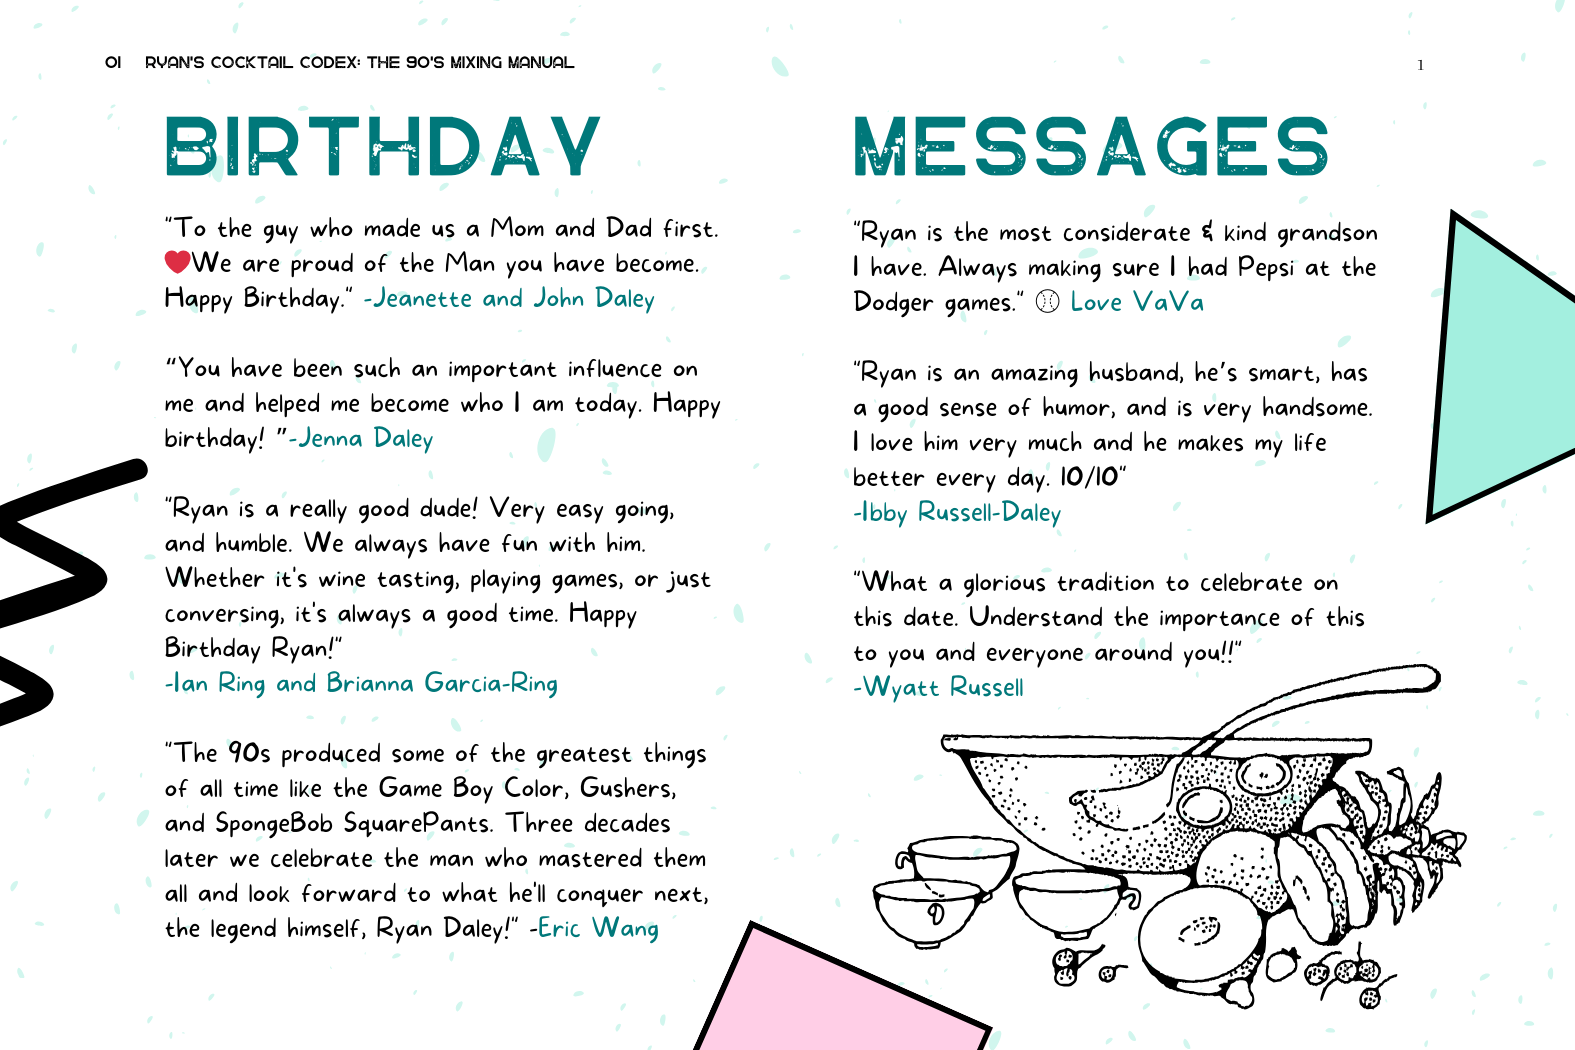 01 RYAN'S COCKTAIL CODEX: THE 90'S MIXING MANUAL
1
BIRTHDAY MESSAGES
"To the guy who made us a Mom and Dad first.
❤️We are proud of the Man you have become.
Happy Birthday." -Jeanette and John Daley
“You have been such an important influence on
me and helped me become who I am today. Happy
birthday! ”-Jenna Daley
"Ryan is a really good dude! Very easy going,
and humble. We always have fun with him.
Whether it's wine tasting, playing games, or just
conversing, it's always a good time. Happy
Birthday Ryan!"
-Ian Ring and Brianna Garcia-Ring
"The 90s produced some of the greatest things
of all time like the Game Boy Color, Gushers,
and SpongeBob SquarePants. Three decades
later we celebrate the man who mastered them
all and look forward to what he'll conquer next,
the legend himself, Ryan Daley!" -Eric Wang
"Ryan is the most considerate & kind grandson
I have. Always making sure I had Pepsi at the
Dodger games." ⚾ Love VaVa
"Ryan is an amazing husband, he’s smart, has
a good sense of humor, and is very handsome.
I love him very much and he makes my life
better every day. 10/10"
-Ibby Russell-Daley
"What a glorious tradition to celebrate on
this date. Understand the importance of this
to you and everyone around you!!"
-Wyatt Russell